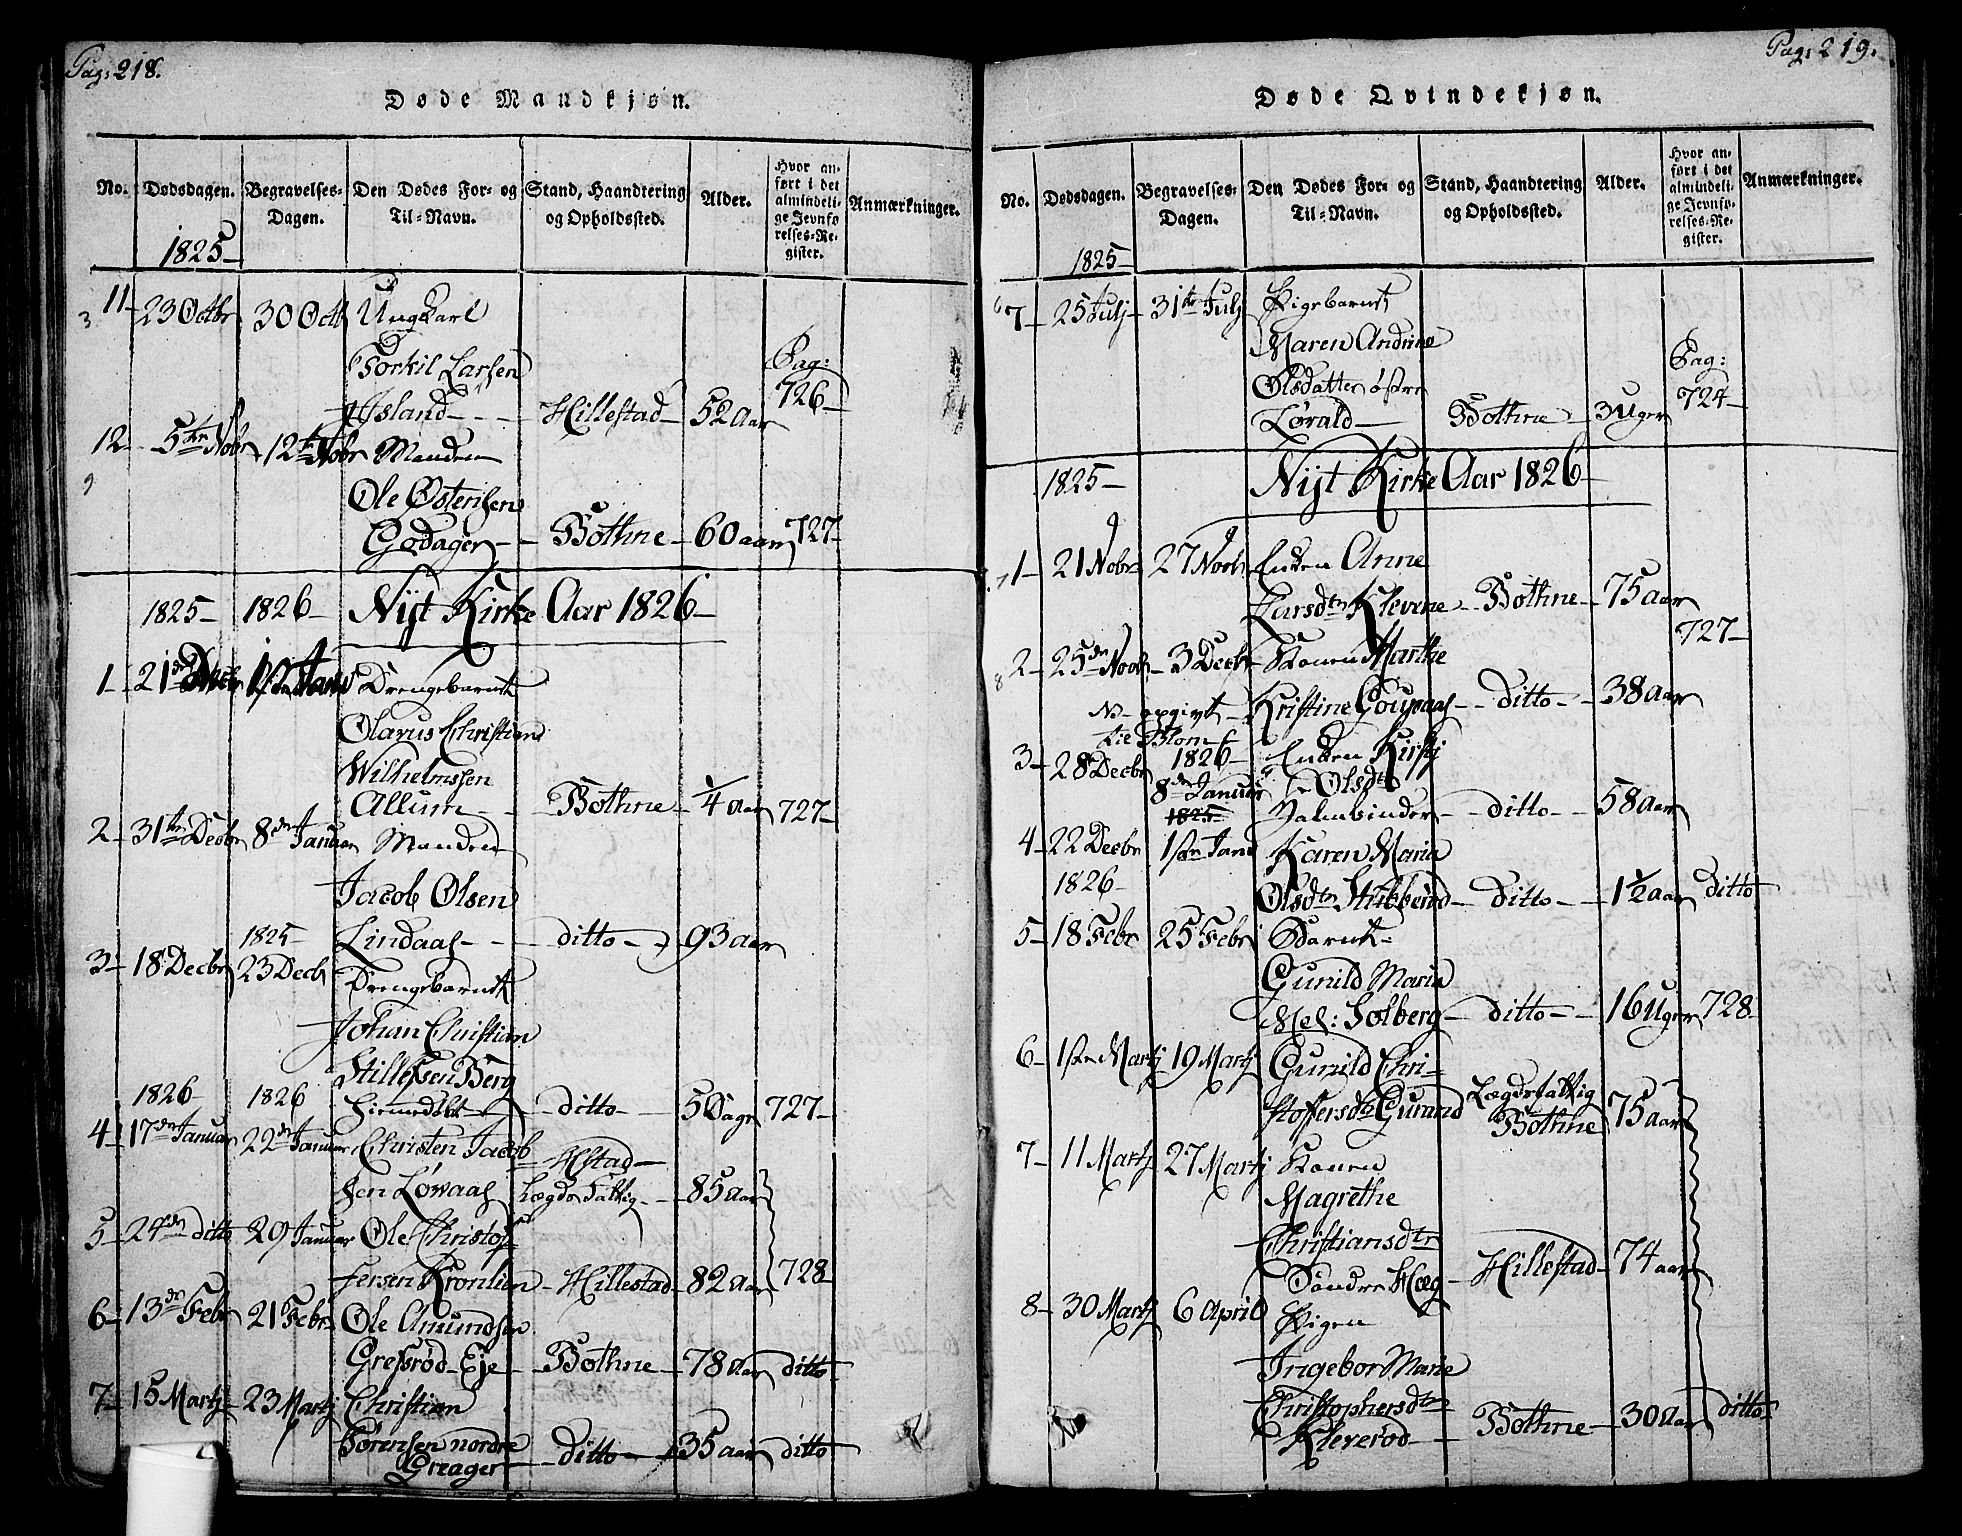 Pag: 218.
Døde Mandkjøn.
No. Dødsdagen. Begravelses-Dagen. Den Dødes For- og Til-Navn. Stand, Haandtering og Opholdssted. Alder. Hvor anført i det almindelige Jevnførelses-Register. Anmærkninger.
1825
11 23 Octbr 30 Octb Ungkarl
Torkil Larsen
Island Hillestad 52 aar Pag: 726
12 5te Nobr 12te Nobr Manden
Ole Østensen
Godager Bothne 60 aar 727
1825 1826 Nÿt Kirke Aar 1826
1 21de Decbr Drengebarnet
Olarus Christian
Wilhelmssen
Allum Bothne 1/4 Aar 727
2 31te Decbr 8de Januar Manden
Jacob Olsen
Lindaas ditto 93 aar
1825
3 18 Decbr 23 Decb Drengebarnet
Johan Christian
Stillefsen Berg
1826 1826 ditto 5 Dage 727
4 17de Januar 22de Januar Christen Jacob
sen Løwaas Hstad Lægds Fattig 85 aar
5 24de ditto 29 Januar Ole Christof
fersen Kronlien Hillestad 82 aar 728
6 13de Febr 21 Febr Ole Amundsen
Grefsrød Eje Bothne 78 aar ditto
7 15 Martj 23 Martj Christian
Sørensen nordre
Greager ditto 35 aar ditto
Pag: 219.
Døde Qvindekjøn.
No. Dødsdagen. Begravelses-Dagen. Den Dødes For- og Til-Navn. Stand, Haandtering og Opholdssted. Alder. Hvor anført i det almindelige Jevnførelses-Register. Anmærkninger.
1825
7 25 Julj 31te Julj Pigebarnet
Maren Andrine
Olsdatter østre
Lørald Bothne 3 Uger Pag: 724
1825 Nÿt Kirke Aar 1826
1 21 Nobr 27 Novb Enken Anne
Larsdtr Klevene Bothne 75 aar
727
2 25de Novb 3 Decbr Konen Marthe
Kristine Goupaas ditto 38 aar
No opgivt
til Blom
3 28 Decbr 1826 Enken Kirstj
8de Januar Olsdtr
1825 ditto 58 aar
4 22 Decbr 1ste Jan Karen Maria
1826 Olsdtr Stibberød ditto 1 1/2 aar ditto
5 18 Febr 25 Febr Barnet
Gunild Maria
Mel: Solberg ditto 16 Uger 728
6 1ste Martj 19 Martj Gunild Chri-
stoffersdtr Gurand Lægdsfattig Bothne 75 aar
7 11 Martj 27 Martj Konen
Magrethe
Christiansdtr
Søndre Høeg Hillestad 74 aar
8 30 Martj 6 April Pigen
Ingebor Marie
Christophersdtr
Kleverød Bothne 30 Aar ditto